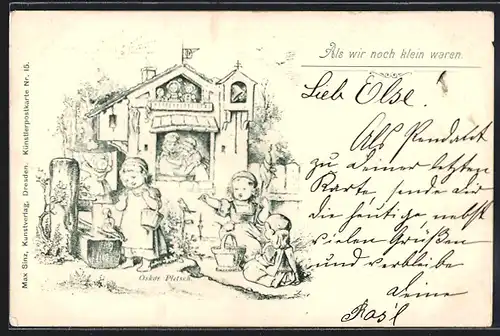 Als wir noch klein waren.
Lieb Else.
Als Pendant
zu deiner letzten
Karte sende dir
die heutige nebst
vielen Grüßen
und verbleibe
deine
Oskar Pletsch.
Max Sinz, Kunstverlag, Dresden. Künstlerpostkarte Nr. 15.